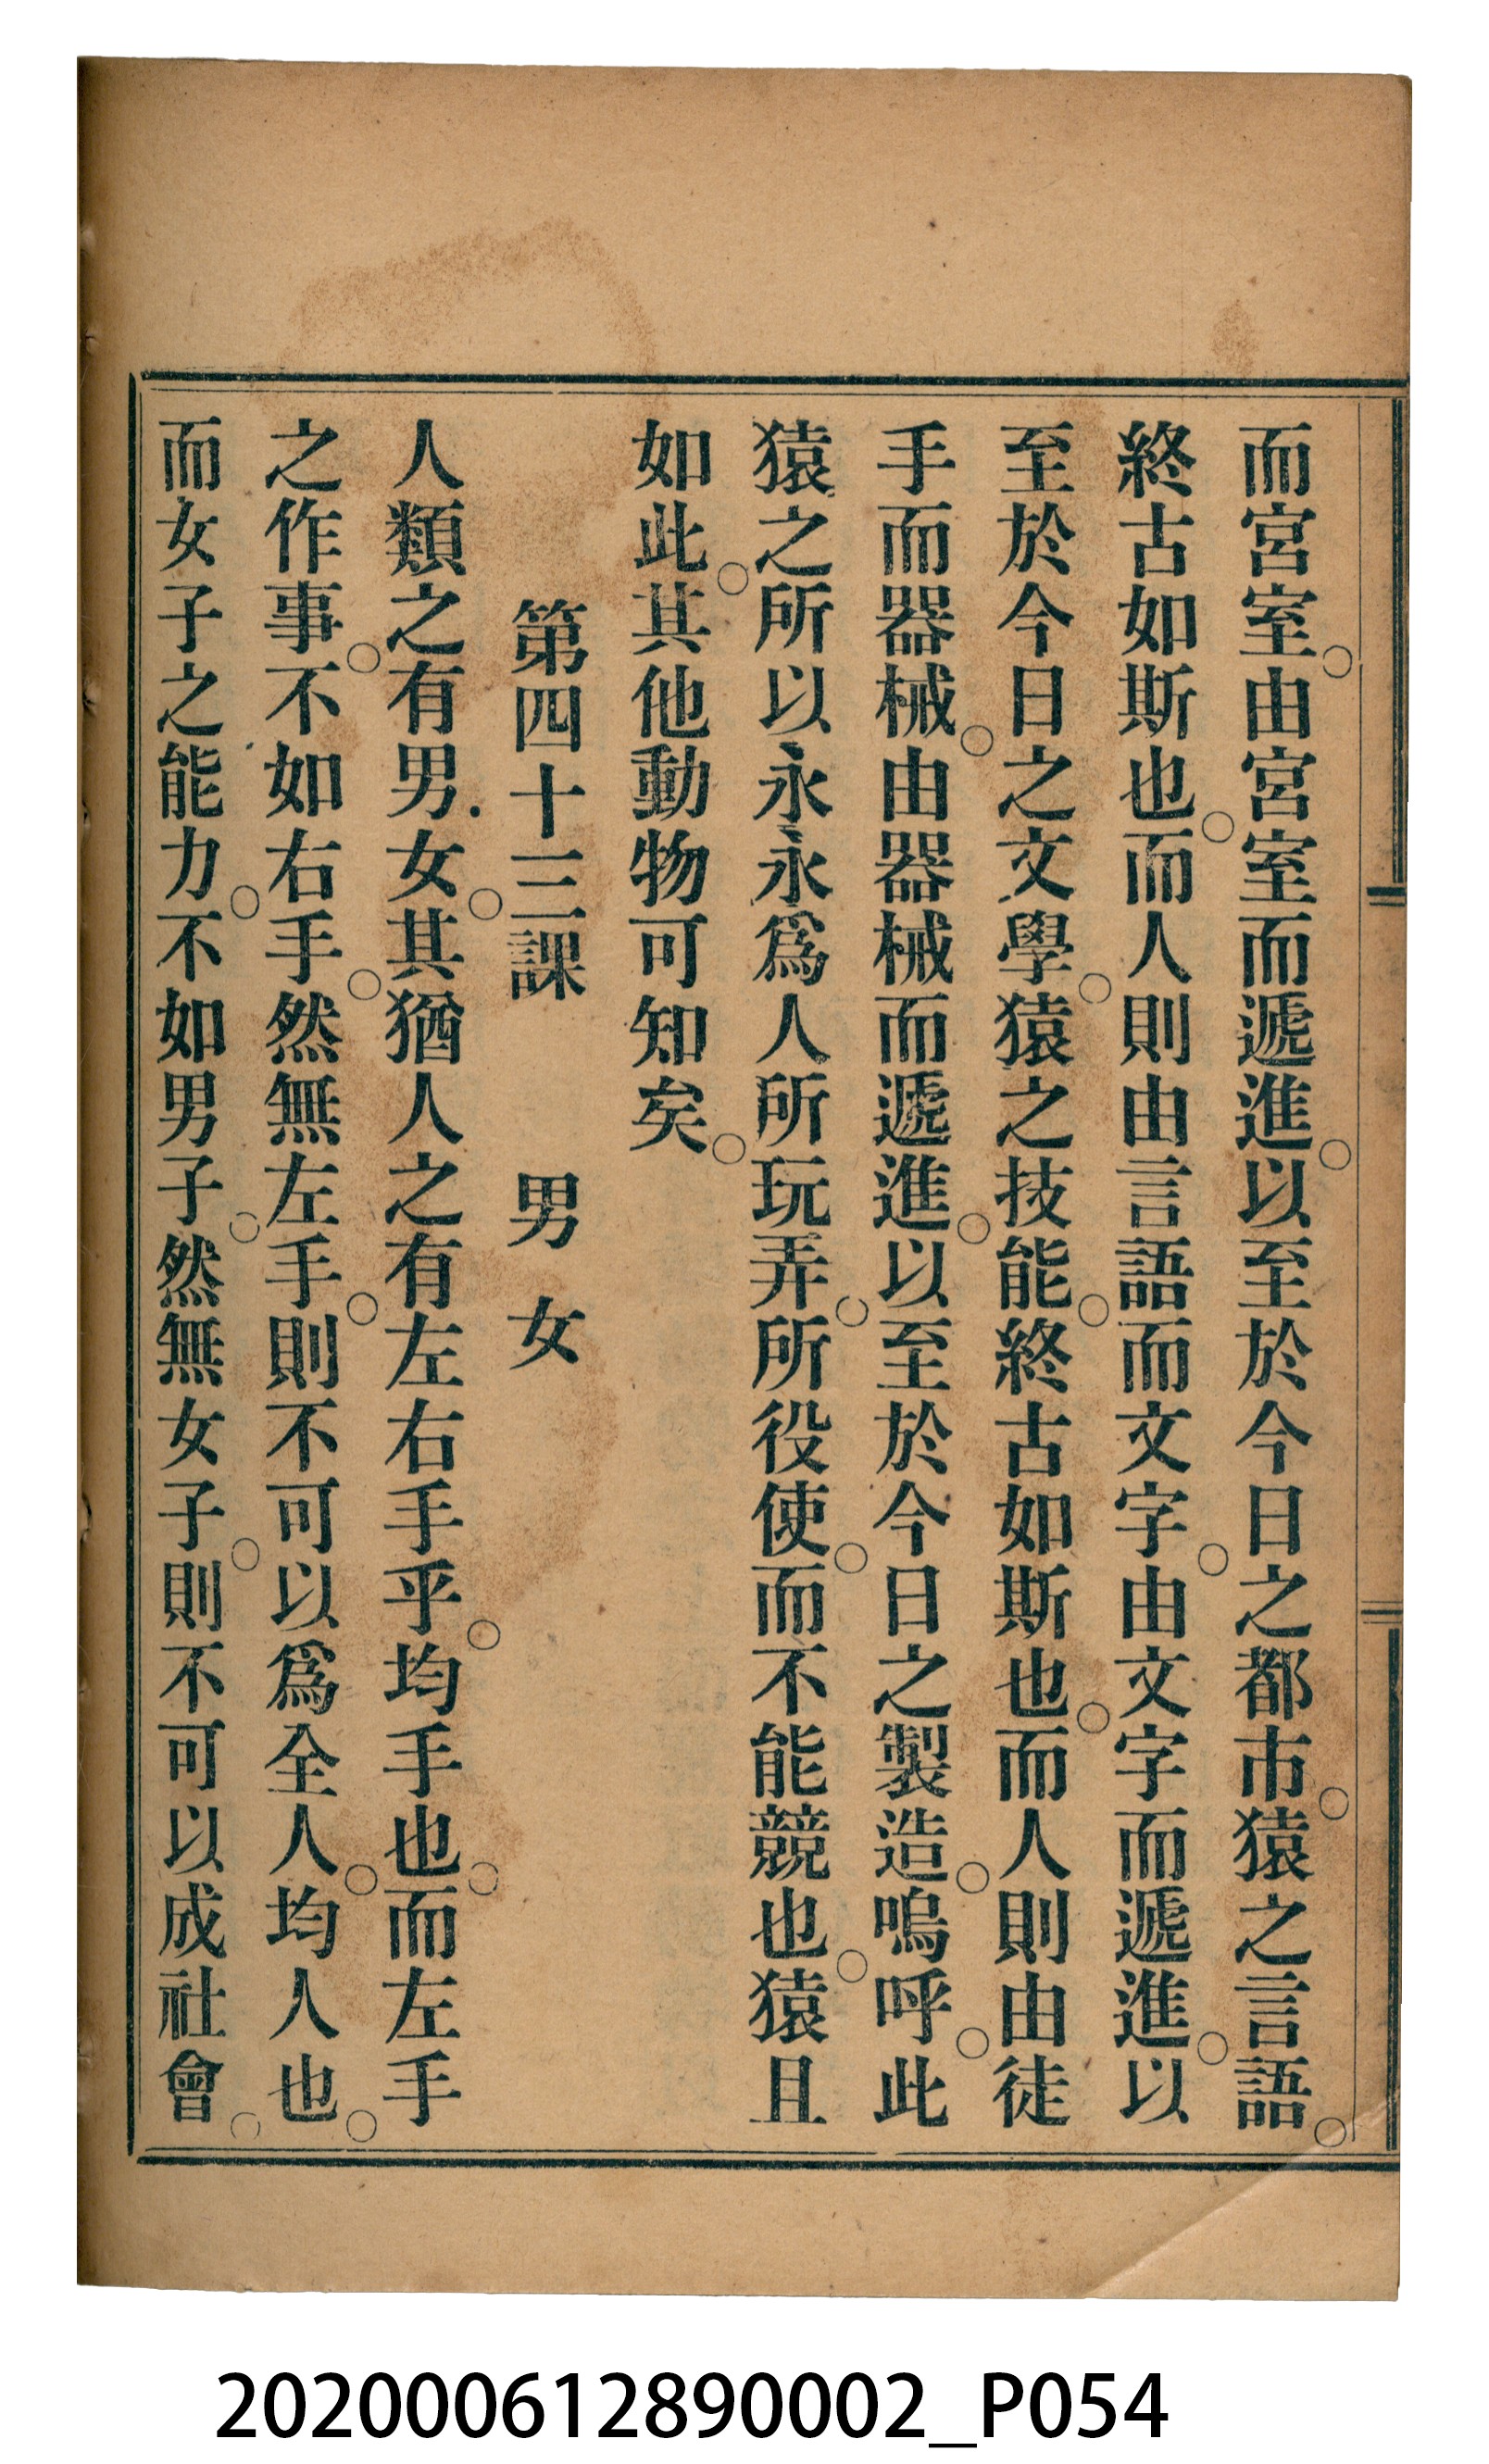 而宮室。由宮室而遞進。以至於今日之都市。猿之言語。
終古如斯也。而人則由言語而文字。由文字而遞進。以
至於今日之文學。猿之技能。終古如斯也。而人則由徒
手而器械。由器械而遞進。以至於今日之製造。嗚呼。此
猿之所以永永爲人所玩弄。所役使。而不能競也。猿且
如此。其他動物可知矣。
第四十三課　男女
人類之有男女。其猶人之有左右手乎。均手也。而左手
之作事。不如右手。然無左手。則不可以爲全人。均人也。
而女子之能力。不如男子。然無女子。則不可以成社會。
202000612890002_P054